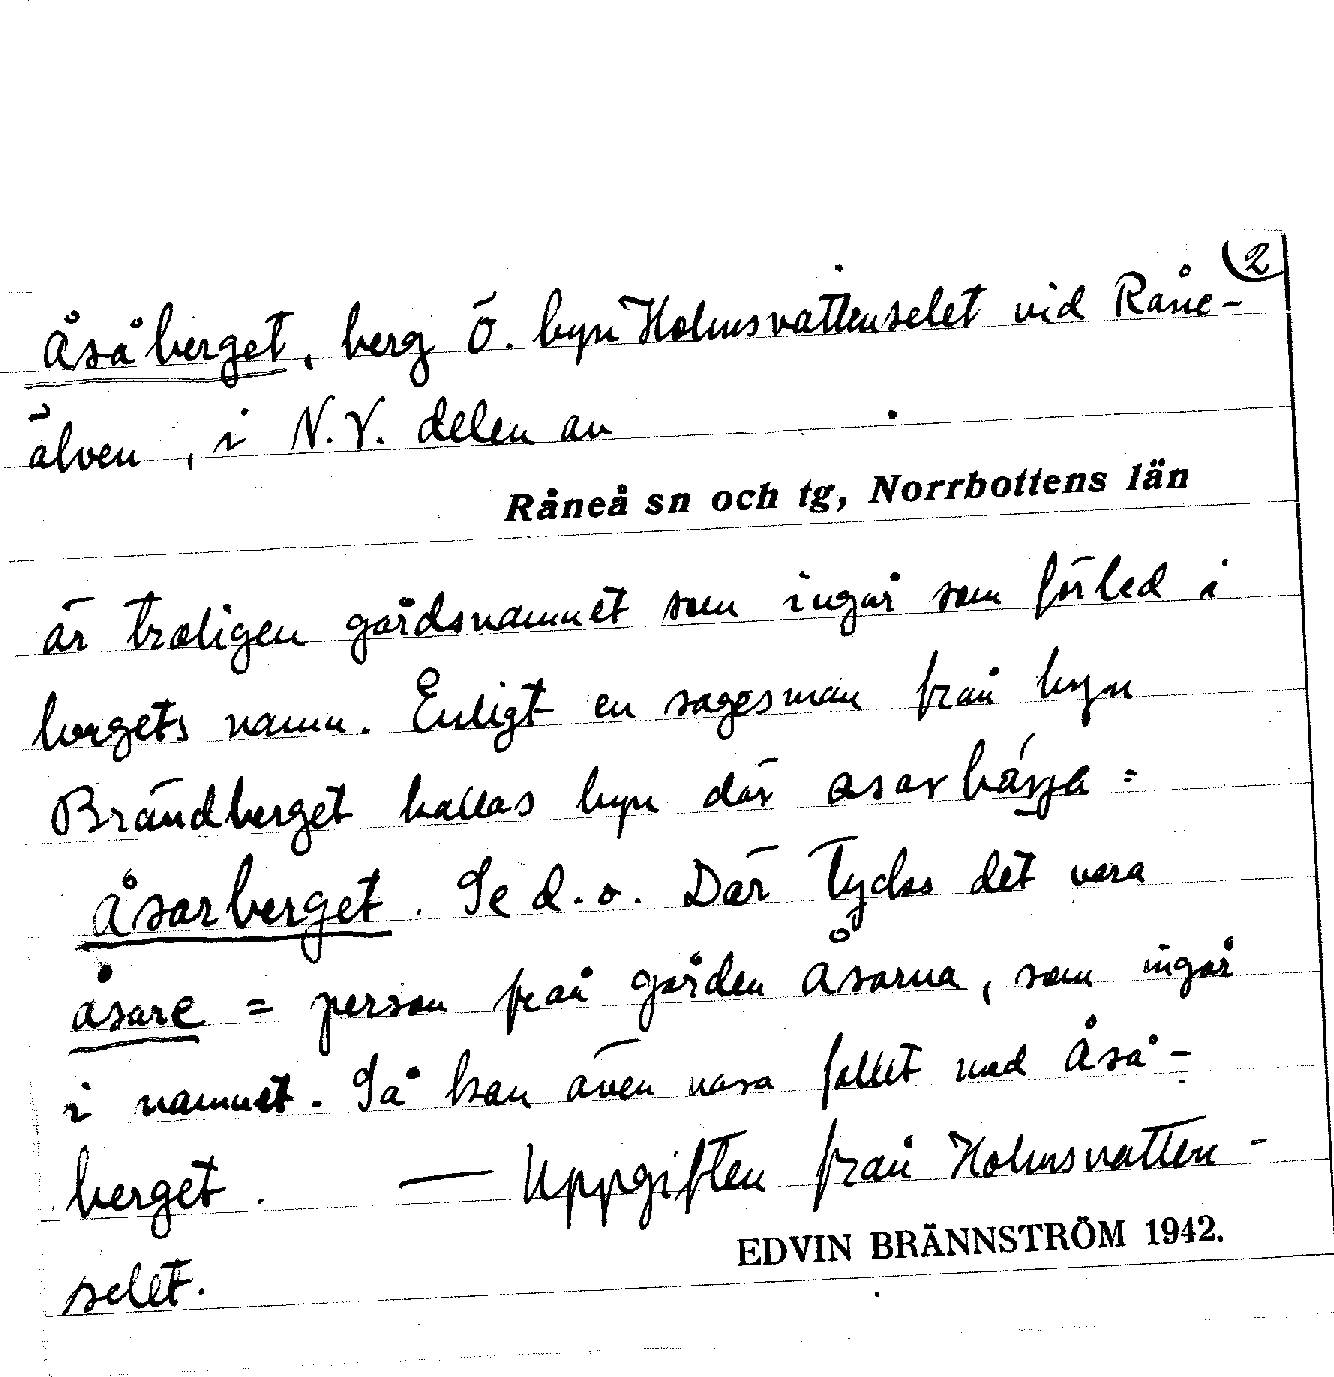 2
Åsåberget, berg Ö. byn Holmsvattenselet vid Råne-
älven, i N.V. delen av
Råneå sn och tg, Norrbottens län
är troligen gårdsnamnet som ingår som förled i
bergets namn. Enligt en sagesman från byn
Brändberget kallas byn där
Åsarberget. Se d.o. Där tycks det vara
åsare = person från gården Åsarna, som ingår
i namnet. Så kan även vara fallet med Åså-
berget. — Uppgiften från Holmsvatten-
selet.
EDVIN BRÄNNSTRÖM 1942.